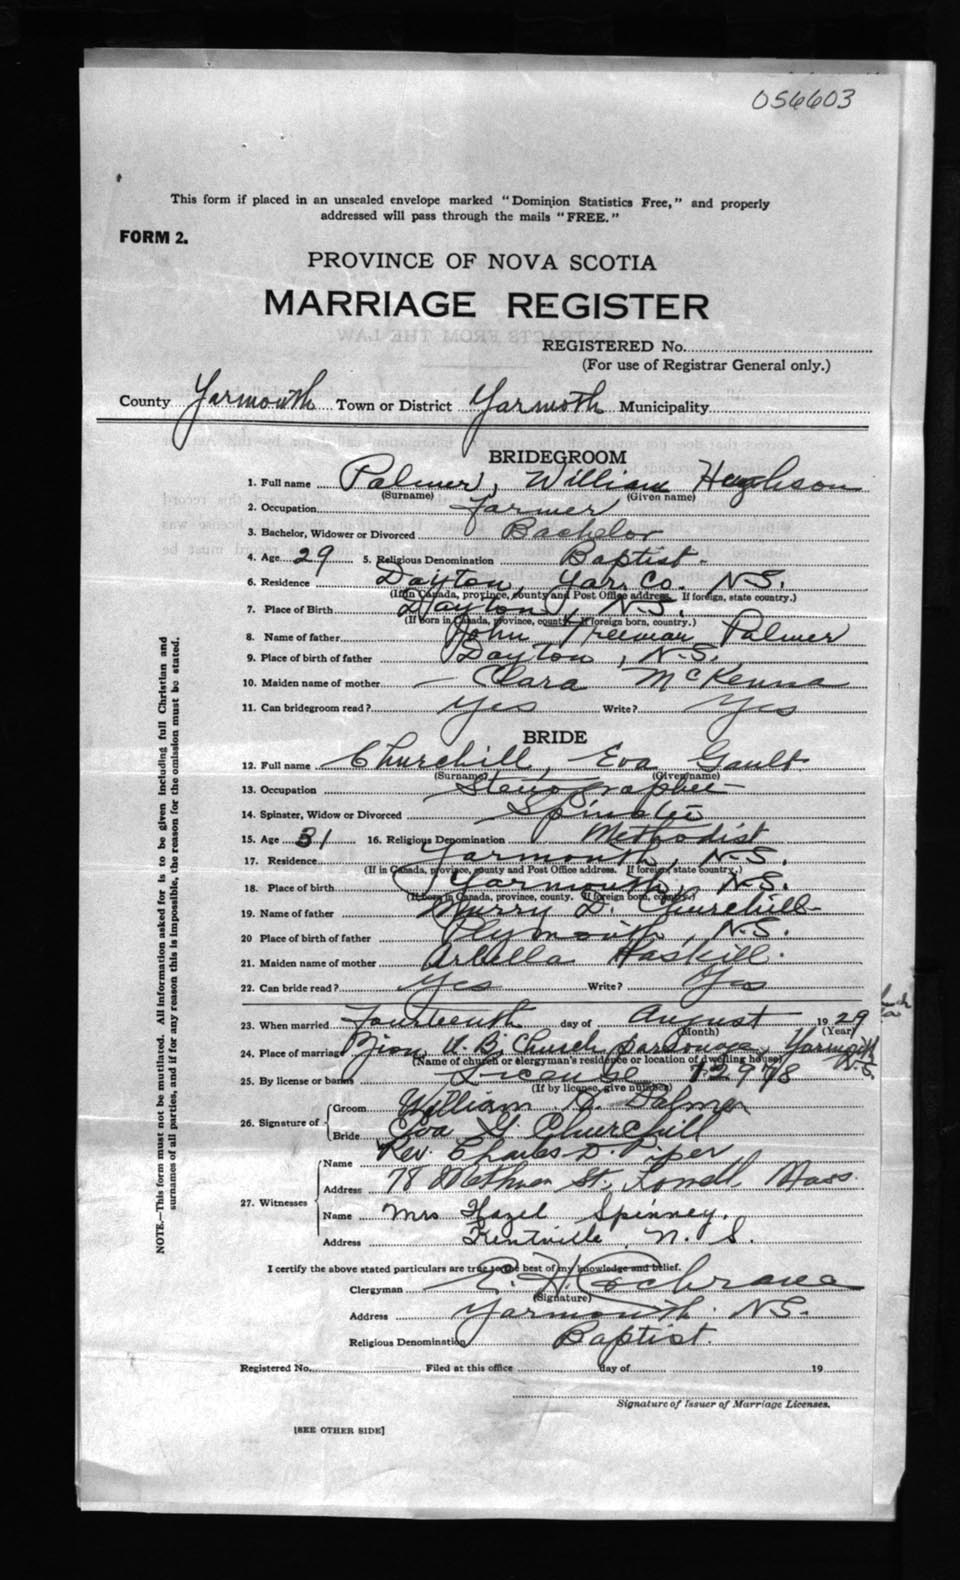 056603
This form if placed in an unsealed envelope marked "Dominion Statistics Free," and properly
addressed will pass through the mails "FREE."
FORM 2.
PROVINCE OF NOVA SCOTIA
MARRIAGE REGISTER
REGISTERED No.
(For use of Registrar General only.)
County Yarmouth Town or District Yarmoth Municipality
BRIDEGROOM
1. Full name Palmer, William Hughson
(Surname) (Given name)
2. Occupation Farmer
3. Bachelor, Widower or Divorced Bachelor
4. Age 29 5. Religious Denomination Baptist.
6. Residence Dayton, Yar. Co. N.S.
(If in Canada, province, county and Post Office address. If foreign, state country.)
7. Place of Birth Dayton, N.S.
(If born in Canada, province, county. If foreign born, country.)
8. Name of father John Freeman Palmer
9. Place of birth of father Dayton, N.S.
10. Maiden name of mother Clara McKenna
11. Can bridegroom read? Yes Write? Yes
BRIDE
12. Full name Churchill, Eva Gault
(Surname) (Given name)
13. Occupation Stenographer
14. Spinster, Widow or Divorced Spinster
15. Age 31 16. Religious Denomination Methodist
17. Residence Yarmouth, N.S.
(If in Canada, province, county and Post Office address. If foreign, state country.)
18. Place of birth Yarmouth, N.S.
(If born in Canada, province, county. If foreign born, country.)
19. Name of father Murry D. Churchill
20 Place of birth of father Plymouth, N.S.
21. Maiden name of mother Arbella Haskill.
22. Can bride read? Yes Write? Yes
23. When married Fourteenth day of August 1929
(Month) (Year)
24. Place of marriage Zion U.B. Church parsonage, Yarmouth N.S.
(Name of church or clergyman's residence or location of dwelling house)
25. By license or banns License 12978
(If by license, give number)
26. Signature of Groom William H. Palmer
Bride Eva G. Churchill
27. Witnesses Name Rev. Charles D. Piper
Address 78 Methuen St., Lowell Mass.
Name Mrs Hazel Spinney.
Address Kentville, N.S.
I certify the above stated particulars are true to the best of my knowledge and belief.
Clergyman E. H. Cochrane
(Signature)
Address Yarmouth. N.S.
Religious Denomination Baptist.
Registered No. Filed at this office day of 19
Signature of Issuer of Marriage Licenses.
[SEE OTHER SIDE]
NOTE.—This form must not be mutilated. All information asked for is to be given including full Christian and
surnames of all parties, and if for any reason this is impossible, the reason for the omission must be stated.